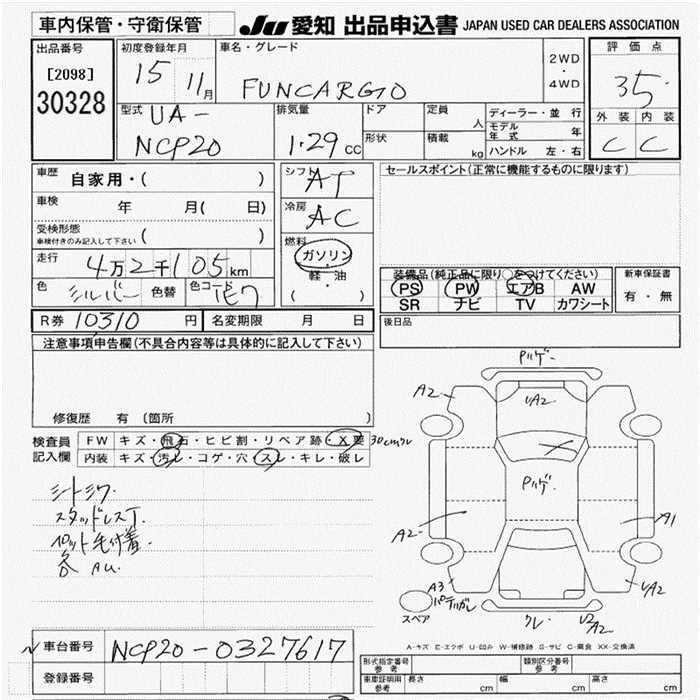 車内保管・守衛保管
JU 愛知 出品申込書 JAPAN USED CAR DEALERS ASSOCIATION
出品番号
[2098]
30328
初度登録年月
15 11月
車名・グレード
FUNCARGO
2WD
・
4WD
評価点
3.5
外装 内装
C C
型式
UA-
NCP20
排気量
1.29 CC
ドア
形状
定員
人
積載
kg
ディーラー・並行
モデル年式 年
ハンドル 左・右
車歴 自家用・( )
車検 年 月( 日)
受検形態
車検付きのみ記入して下さい ( )
走行 4万2千105km
色 シルバー 色替 色コード 1E7
シフト AT
冷房 AC
燃料
ガソリン
・
軽・油
( )
セールスポイント(正常に機能するものに限ります)
装備品(純正品に限り○をつけてください)
PS PW エアB AW
SR ナビ TV カワシート
新車保証書
有・無
R券 10310 円 名変期限 月 日
後日品
注意事項申告欄(不具合内容等は具体的に記入して下さい)
修復歴 有 (箇所 )
検査員
記入欄
FW キズ・飛石・ヒビ割・リペア跡・X要 30cmワレ
内装 キズ・汚レ・コゲ・穴・スレ・キレ・破レ
シートシワ.
スタッドレスT.
ペット毛付着.
各 AU.
Pハゲ.
A2
UA2
Pハゲ.
A2
A1
A3
UA2
スペア
クレ.
U2
A2
A-キズ E-エクボ U-凹み W-補修跡 S-サビ C-腐食 XX-交換済
車台番号 NCP20-0327617
登録番号
形式指定番号
参考
類別区分番号
参考
車庫証明用
参考
長さ cm 幅 cm 高さ cm